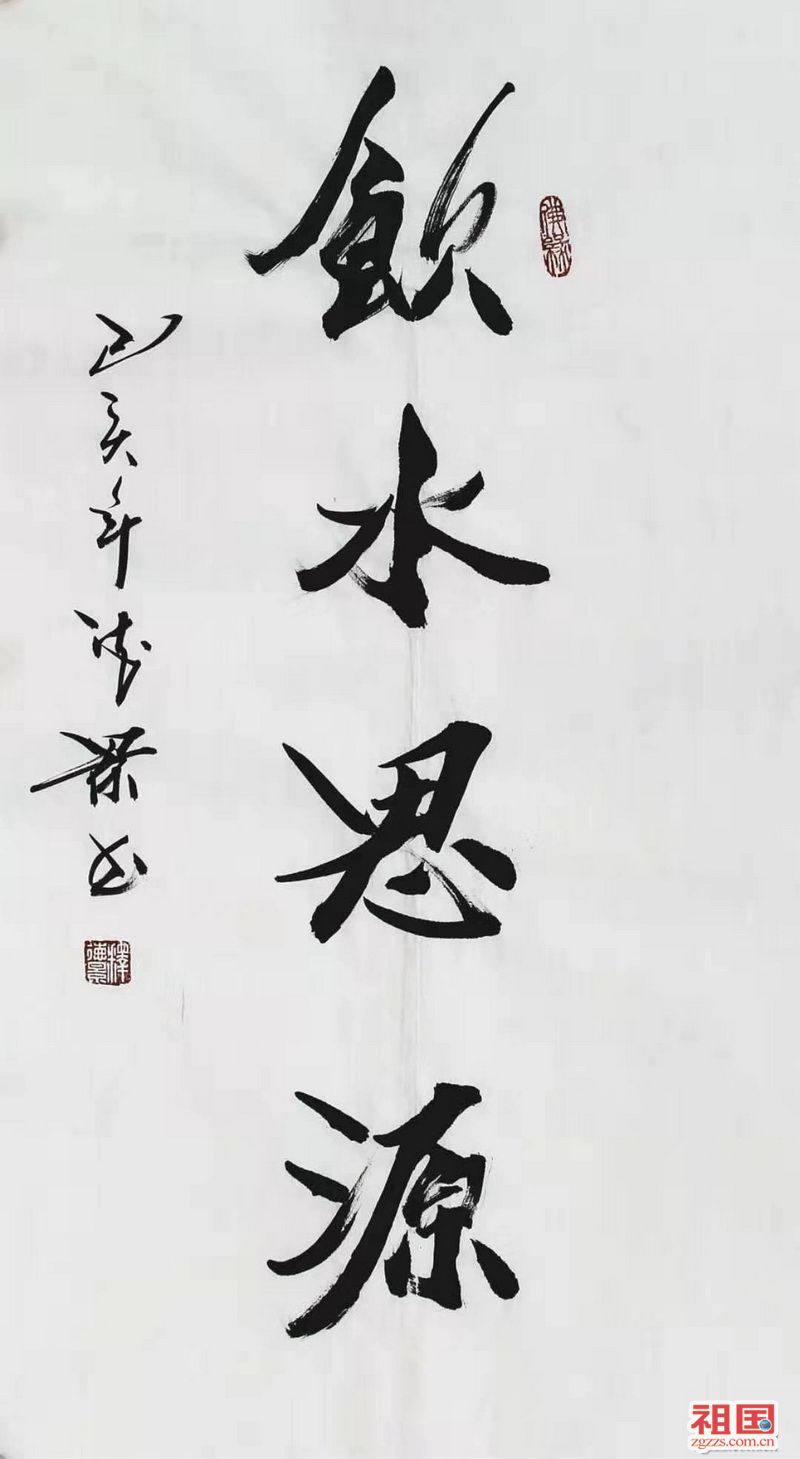 飲水思源
己亥年 书
祖国
zgzzs.com.cn